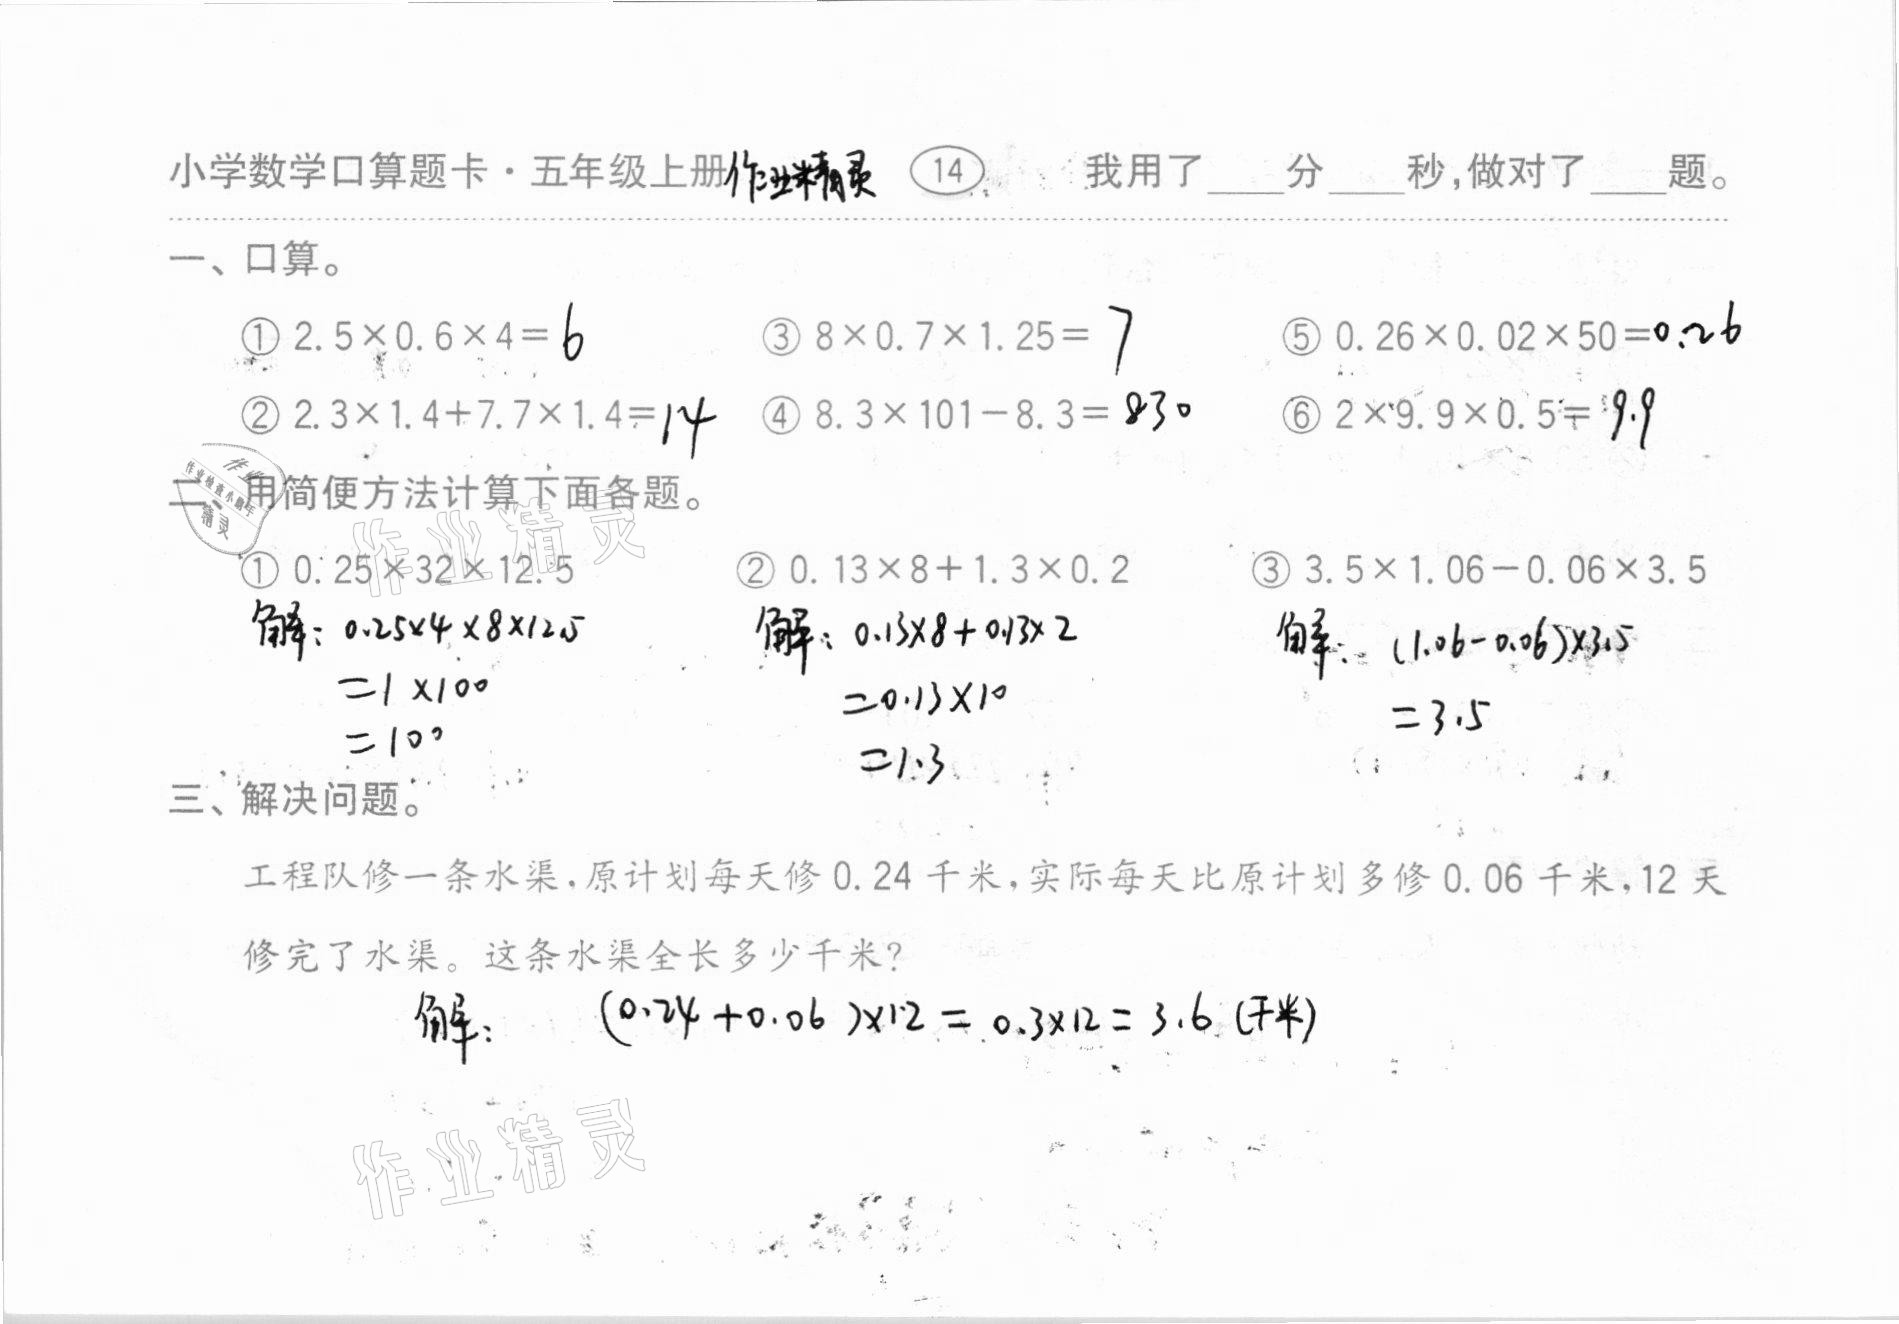 小学数学口算题卡·五年级上册 作业精灵 14 我用了____分____秒,做对了____题。
一、口算。
① 2.5×0.6×4=6 ③ 8×0.7×1.25=7 ⑤ 0.26×0.02×50=0.26
② 2.3×1.4+7.7×1.4=14 ④ 8.3×101-8.3=830 ⑥ 2×9.9×0.5=9.9
作业
作业检查小助手
精灵
二、用简便方法计算下面各题。
作业精灵
① 0.25×32×12.5 ② 0.13×8+1.3×0.2 ③ 3.5×1.06-0.06×3.5
解: 0.25×4×8×12.5 解: 0.13×8+0.13×2 解: (1.06-0.06)×3.5
=1×100 =0.13×10 =3.5
=100 =1.3
三、解决问题。
工程队修一条水渠,原计划每天修0.24千米,实际每天比原计划多修0.06千米,12天
修完了水渠。这条水渠全长多少千米?
解: (0.24+0.06)×12=0.3×12=3.6(千米)
作业精灵